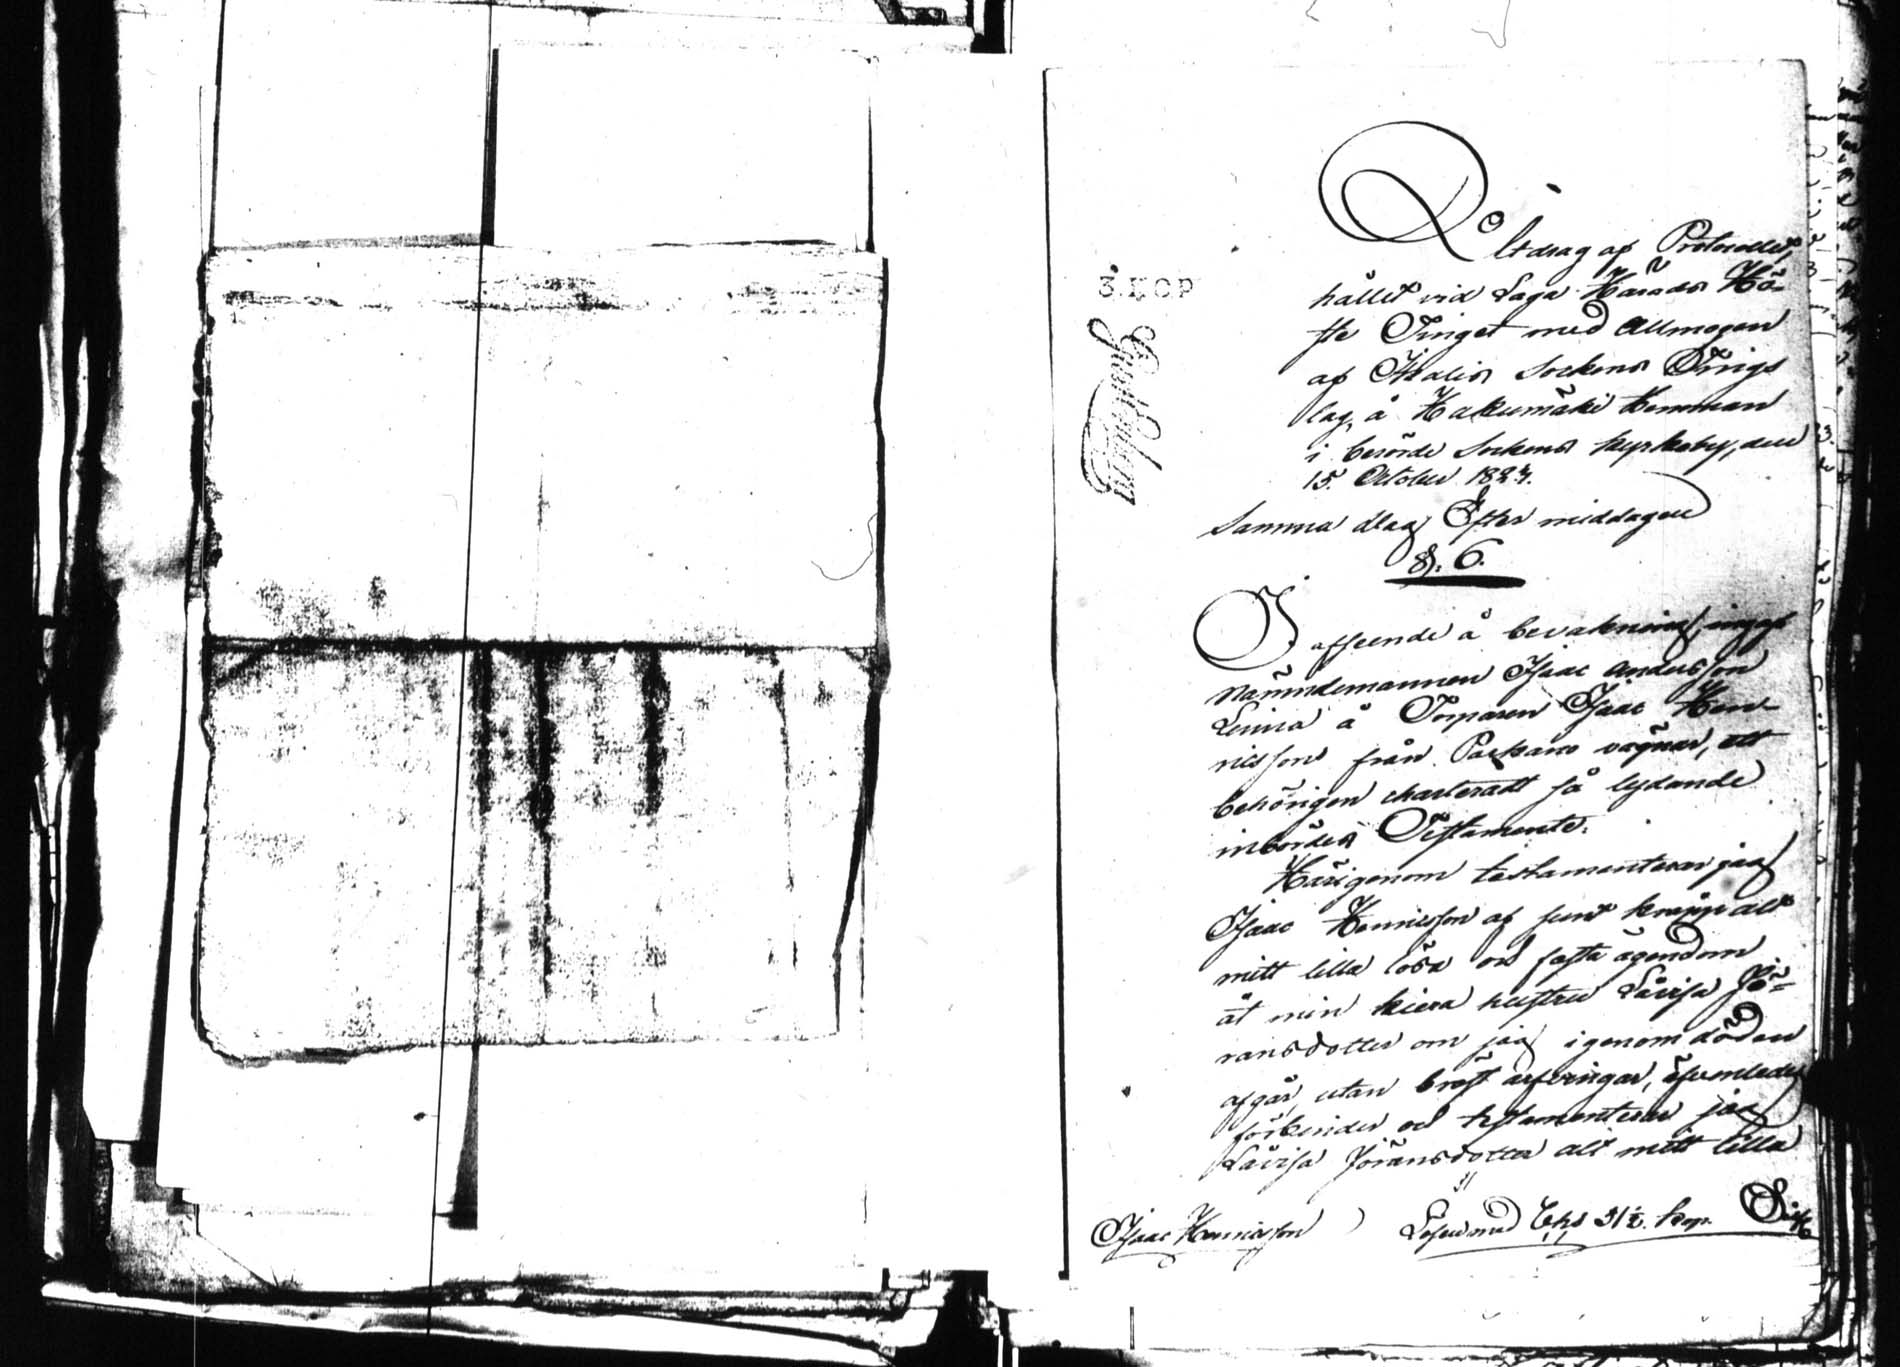 3. KOP
Utdrag af Protocollet,
hållet vid Laga Härads Hö-
ste Tinget med Allmogen
af Ikalis Sockens Tings
lag, å Hakumäki Hemman
i berörde Sockens kyrkoby, den
15. October 1824.
Samma dag Efter middagen
§. 6.
I afseende å bevakning, ingaf
Nämndemannen Isaac Andersson
Leinia å Torparen Isaac Hen-
ricsson från Parkano vägnar, ett
behörigen charteradt så lydande
inbördes Testamente:
Härigenom testamenterar jag
Isaac Henricsson af sunt alt
mitt lilla lösa och fasta ägendom
åt min kiera hustru Lovisa Jö-
ransdotter om jag igenom döden
afgår, utan bröst arfvingar, äfvenledes
förbinder och testamenterar jag
Lovisa Jöransdotter alt mitt lilla
Isaac Henricsson Lösen med 31½ kop.